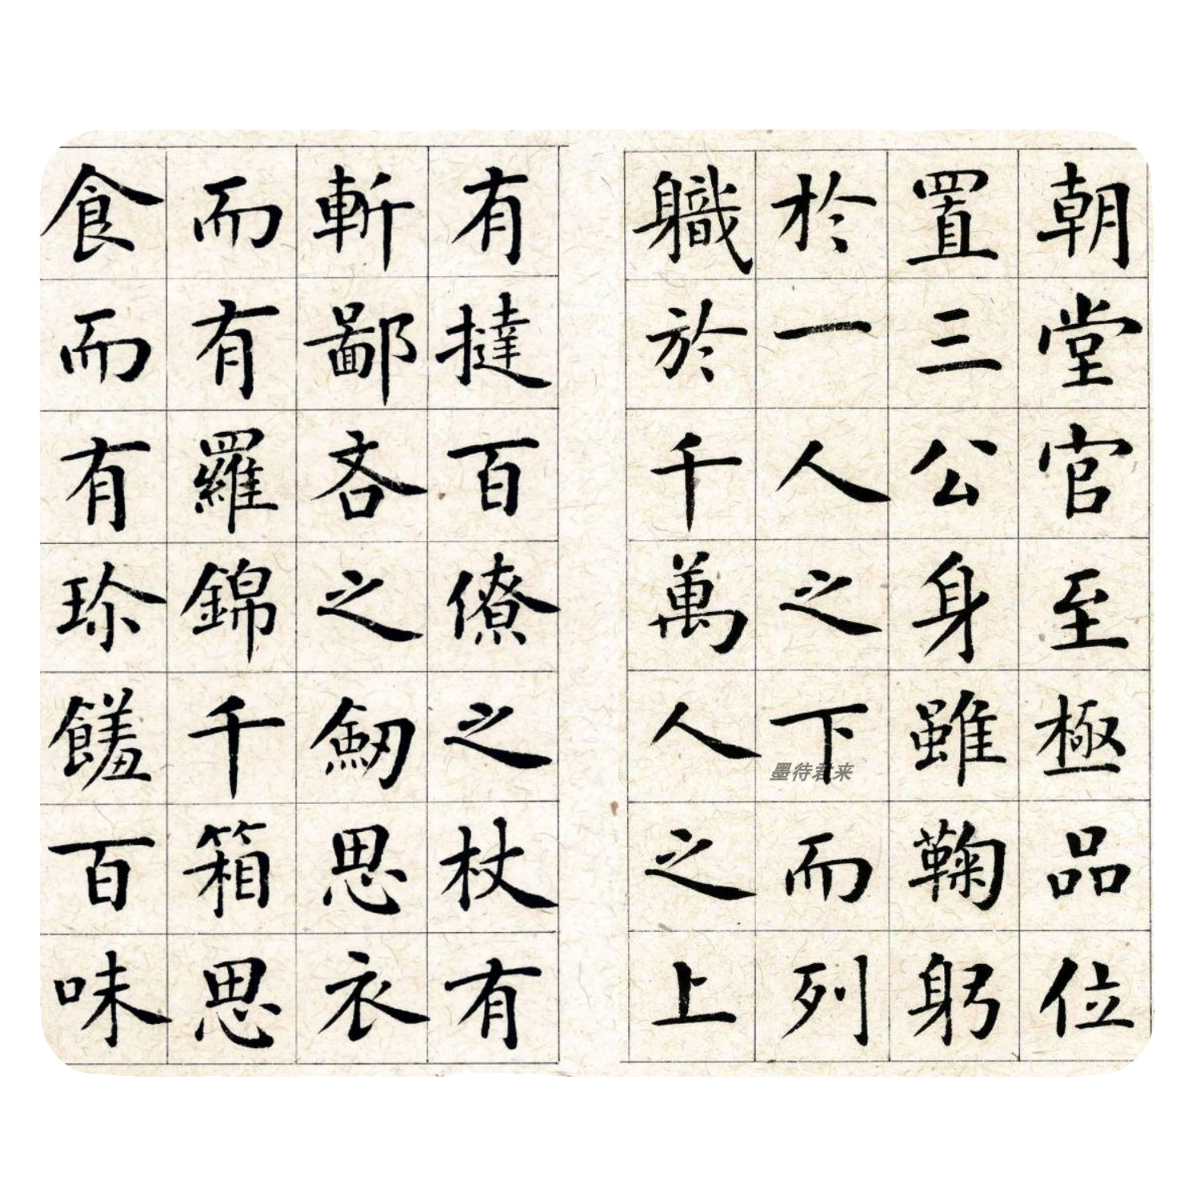 朝堂官至極品位
置三公身雖鞠躬
於一人之下而列
職於千萬人之上
有撻百僚之杖有
斬鄙吝之劒思衣
而有羅錦千箱思
食而有珍饈百味
墨待君来